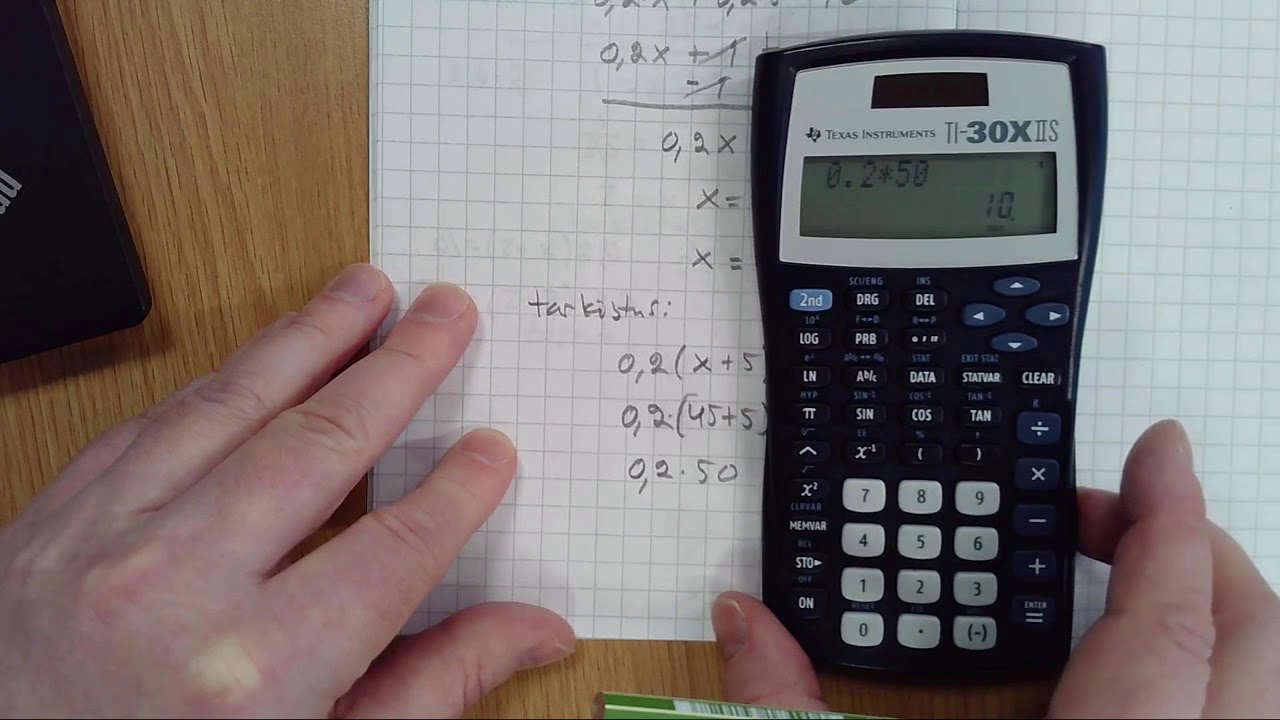 0,2x + 1
-1
0,2x
x =
x =
tarkistus:
0,2(x+5
0,2·(45+5)
0,2·50
TEXAS INSTRUMENTS TI-30X IIS
0.2*50
10.
SCI/ENG INS
2nd DRG DEL
LOG PRB
STAT EXIT STAT
LN Ab/c DATA STATVAR CLEAR
HYP SIN⁻¹ COS⁻¹ TAN⁻¹ K
π SIN COS TAN ÷
EE % ,
^ x⁻¹ ( ) ×
x² 7 8 9
CLRVAR
MEMVAR −
4 5 6
RCL
STO► +
OFF 1 2 3
ON RESET ENTER
0 . (-) =